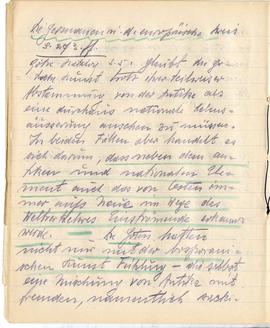 Die Germanen in die europäische Kreis
S. 273 ff.
glaubt die
trotz ihrer teilweisen
Abstammung von der Antike als
eine durchaus nationale Lebens-
äusserung ansehen zu müssen.
In beiden Fällen aber handelt es
sich darum, dass neben dem an-
tiken und nationalen Ele-
ment auch das von Osten im-
mer aufs neue im Wege des
Weltverkehrs Einströmende erkannt
werde. Die Goten hatten
nicht nur mit der bosporani-
schen Kunst Fühlung – die selbst
eine Mischung von Antike mit
fremden, namentlich